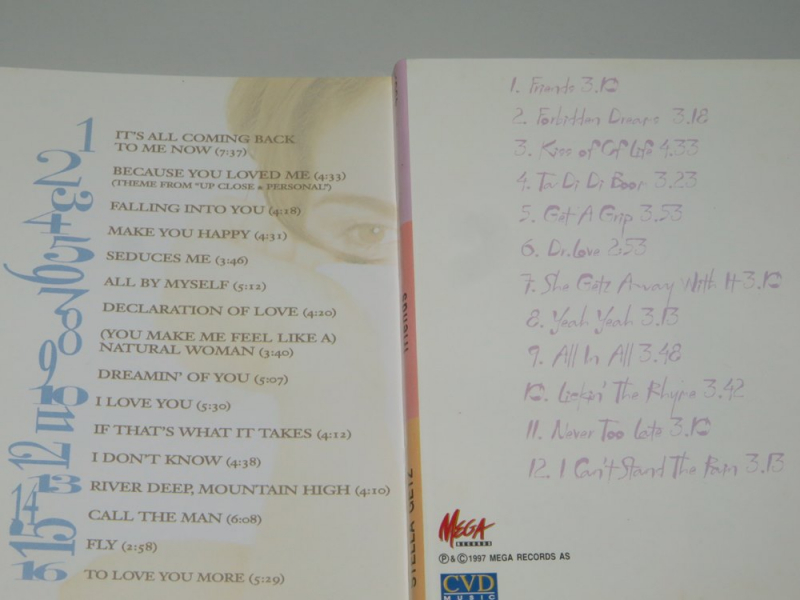 1 IT'S ALL COMING BACK
TO ME NOW (7:37)
2 BECAUSE YOU LOVED ME (4:33)
(THEME FROM "UP CLOSE & PERSONAL")
3 FALLING INTO YOU (4:18)
4 MAKE YOU HAPPY (4:31)
5 SEDUCES ME (3:46)
6 ALL BY MYSELF (5:12)
7 DECLARATION OF LOVE (4:20)
8 (YOU MAKE ME FEEL LIKE A)
NATURAL WOMAN (3:40)
9 DREAMIN' OF YOU (5:07)
10 I LOVE YOU (5:30)
11 IF THAT'S WHAT IT TAKES (4:12)
12 I DON'T KNOW (4:38)
13 RIVER DEEP, MOUNTAIN HIGH (4:10)
14 CALL THE MAN (6:08)
15 FLY (2:58)
16 TO LOVE YOU MORE (5:29)
friends
STELLA GETZ
1. Friends 3.10
2. Forbidden Dreams 3.18
3. Kiss of Life 4.33
4. Ta Di Di Boom 3.23
5. Get A Grip 3.53
6. Dr. Love 2:53
7. She Getz Away With It 3.10
8. Yeah Yeah 3.13
9. All In All 3.48
10. Lickin' The Rhyme 3.42
11. Never Too Late 3.10
12. I Can't Stand The Rain 3.13
MEGA
RECORDS
Ⓟ & © 1997 MEGA RECORDS AS
CVD
MUSIC